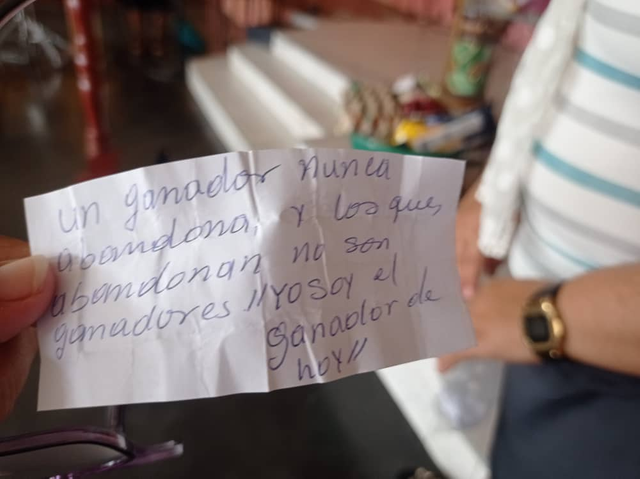 un ganador nunca
abandona, y los que
abandonan no son
ganadores //YO SOY el
ganador de
hoy//